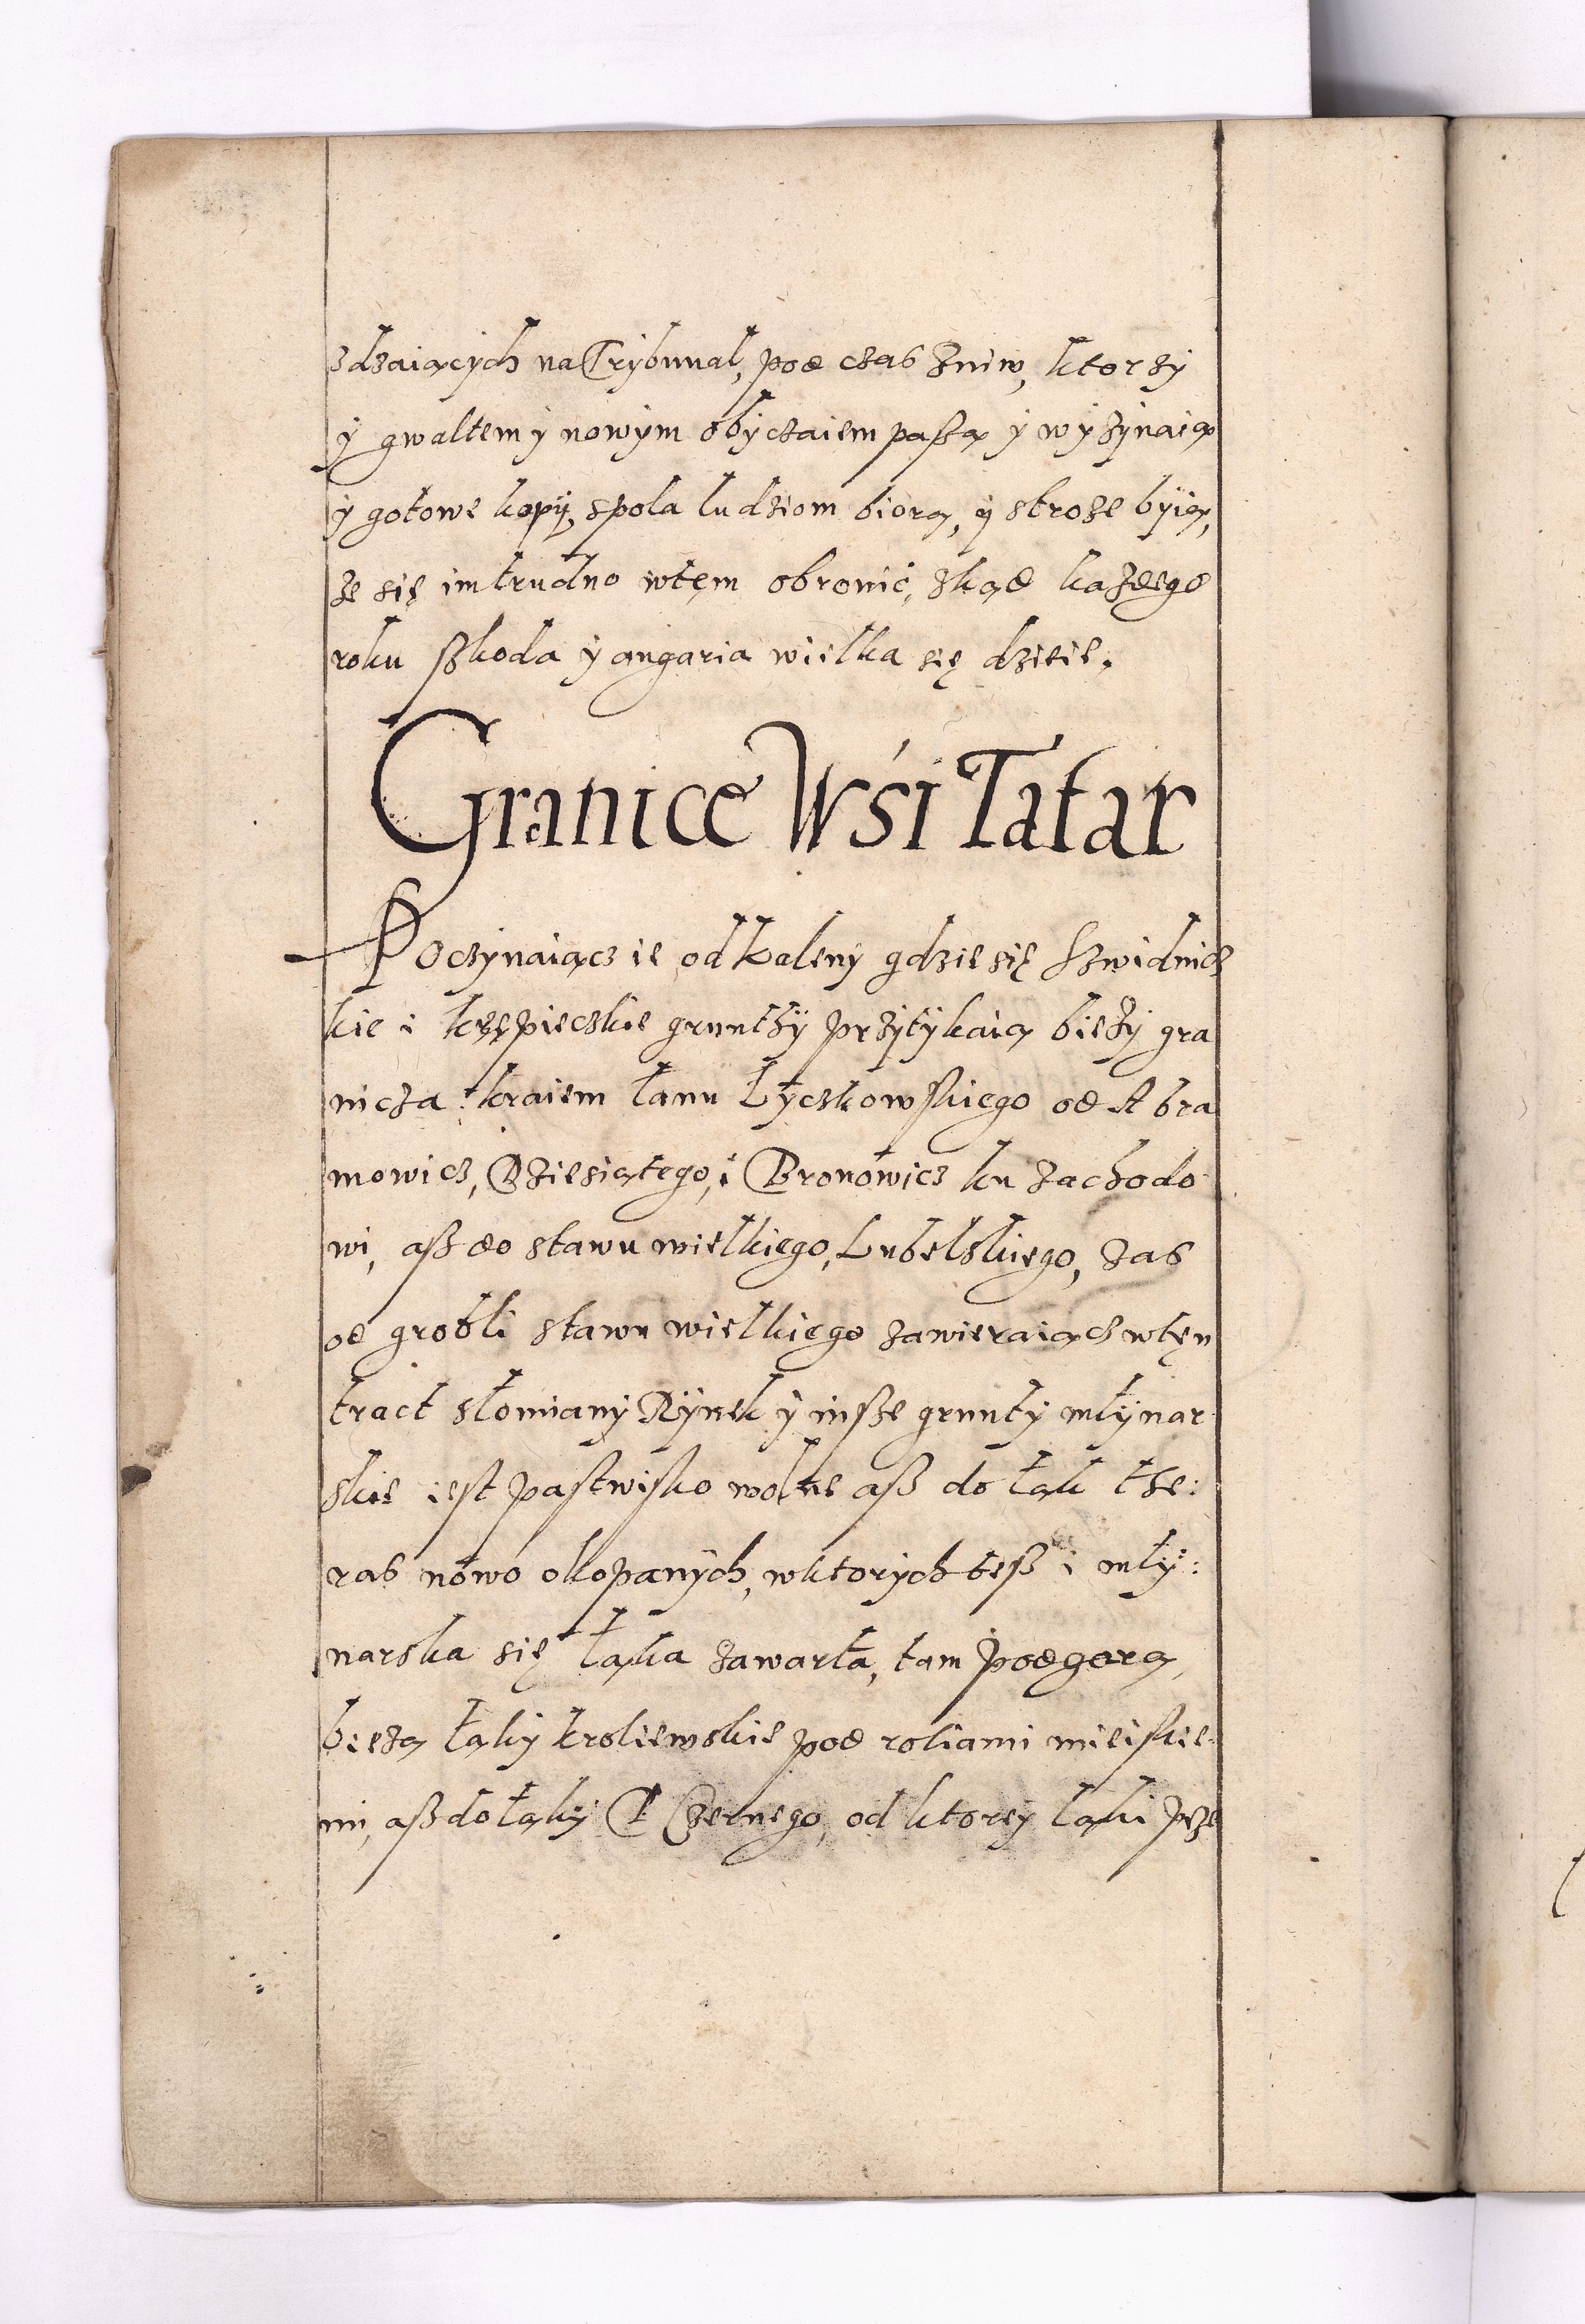 zdzaiących na Trybunal, pod czas Żniw, ktorzÿ
ÿ gwaltem ÿ nowÿm obÿczaiem paszą ÿ wÿżÿnaią
ÿ gotowe kopÿ, spola ludziom biorą, ÿ stroże bÿią,
że się im trudno wtęm obronić, zkąd każdego
roku szkoda ÿ angaria wielka się dzieie.
Granice Wśi Tatar
Poczÿnaiącz ie od kalenÿ gdzie się Szwidnicz
kie i krzępieczkie grunthÿ przÿtÿkaią bieżÿ gra
nicza kraiem łanu Łÿczkowskiego od Abra
mowicz, Dziesiątego, i Bronowicz ku zachodo
wi, asz do stawu wielkiego, Lubelskiego, zas
od grobli stawu wielkiego zawieraiącz wtęn
tract słomianÿ Rÿnek ÿ insze gruntÿ młÿnar
skie iest pastwisko wolne asz do łąk the:
ras nowo okopanÿch, wktorÿch tesz i młÿ:
narska się łąka zawarła, tam podgorą,
bieżą łąkÿ krolewskie pod roliami mieiskie
mi, asz do łąkÿ P Czernego, od ktoreÿ łąki prze